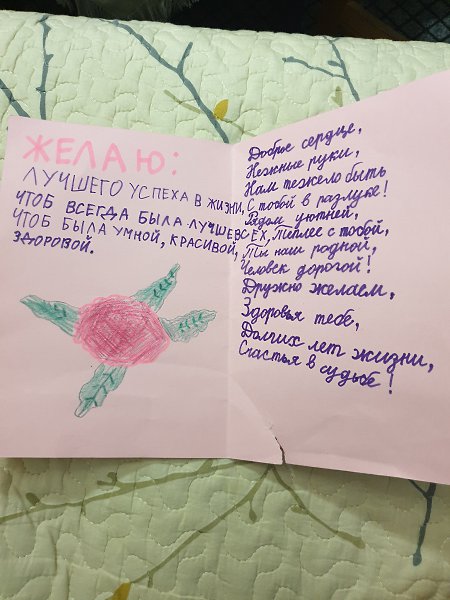 ЖЕЛАЮ:
ЛУЧШЕГО УСПЕХА В ЖИЗНИ,
ЧТОБ ВСЕГДА БЫЛА ЛУЧШЕ ВСЕХ,
ЧТОБ БЫЛА УМНОЙ, КРАСИВОЙ,
ЗДОРОВОЙ.
Доброе сердце,
Нежные руки,
Нам тежело быть
С тобой в разлуке!
Рядом уютней,
Теплее с тобой,
Ты наш родной,
Человек дорогой!
Дружно желаем,
Здоровья тебе,
Долгих лет жизни,
Счастья в судьбе!